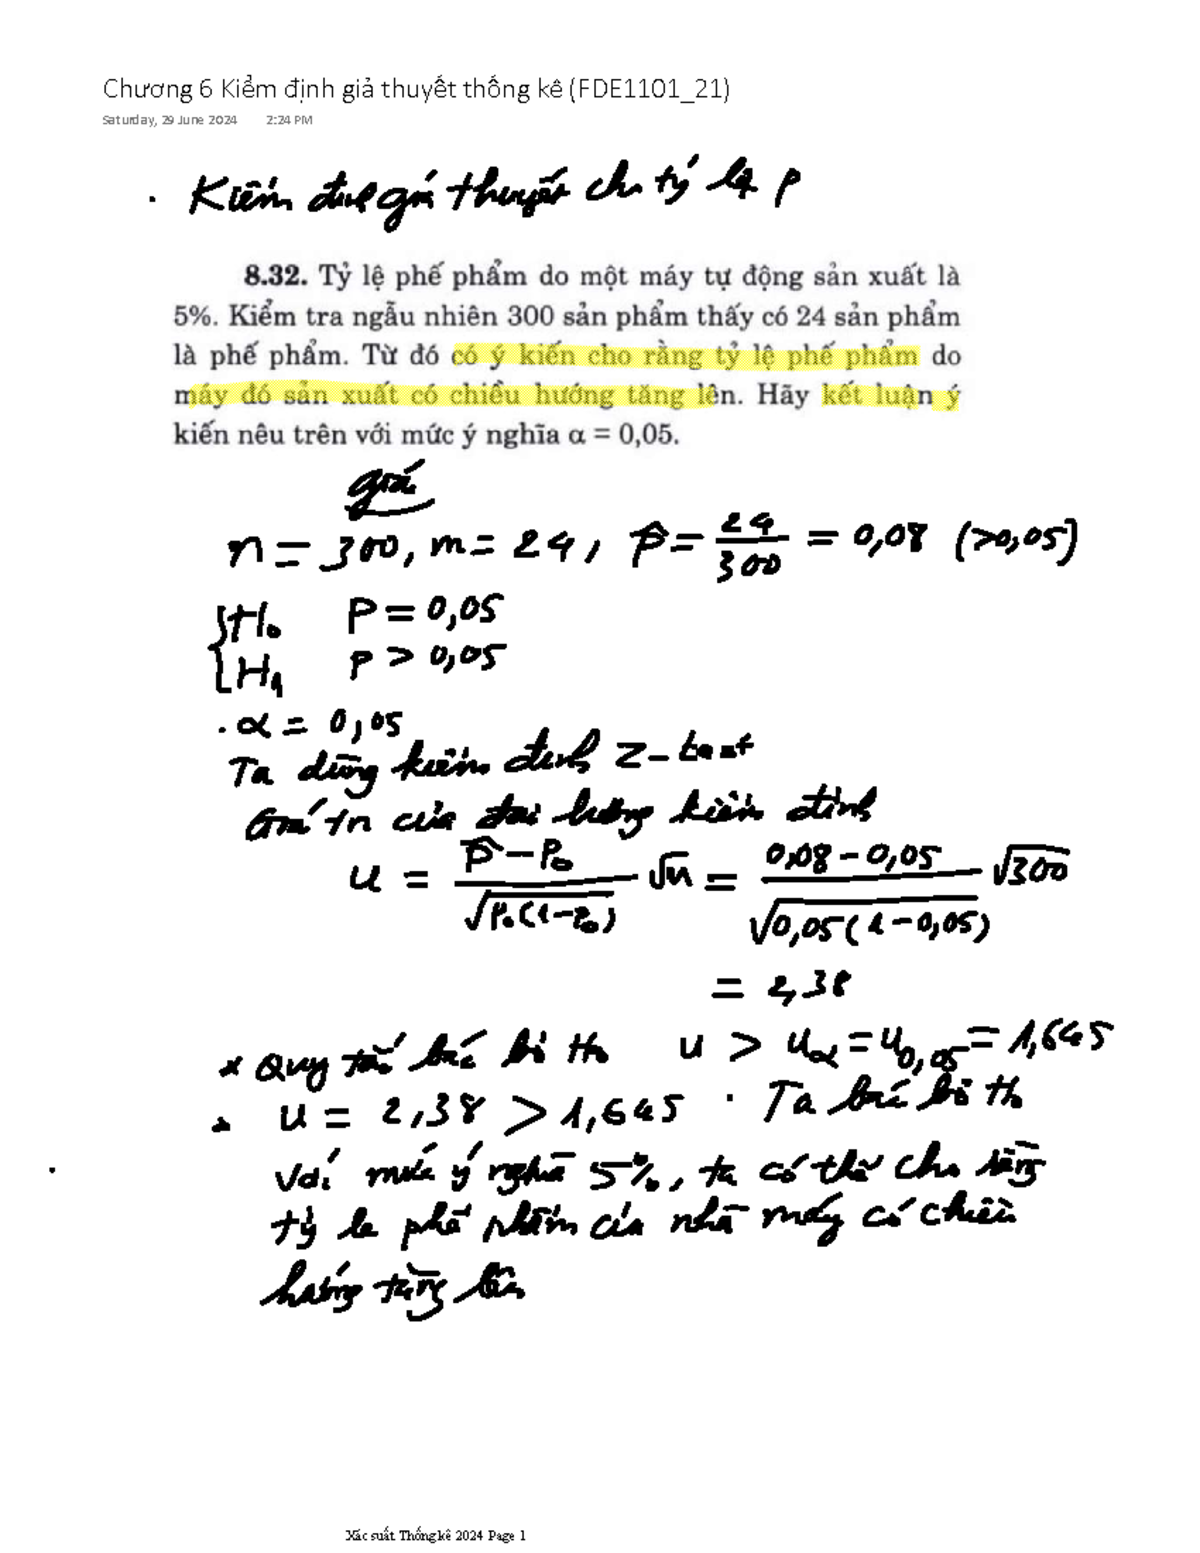 Chương 6 Kiểm định giả thuyết thống kê (FDE1101_21)
Saturday, 29 June 2024 2:24 PM
. Kiểm định giả thuyết cho tỷ lệ p
8.32. Tỷ lệ phế phẩm do một máy tự động sản xuất là
5%. Kiểm tra ngẫu nhiên 300 sản phẩm thấy có 24 sản phẩm
là phế phẩm. Từ đó có ý kiến cho rằng tỷ lệ phế phẩm do
máy đó sản xuất có chiều hướng tăng lên. Hãy kết luận ý
kiến nêu trên với mức ý nghĩa α = 0,05.
giải
n = 300, m = 24, p̂ = 24/300 = 0,08 (>0,05)
{H₀ P = 0,05
H₁ p > 0,05
. α = 0,05
Ta dùng kiểm định Z-test
Giá trị của đại lượng kiểm định
u = (p̂ - p₀)/√(p₀(1-p₀)) √n = (0,08 - 0,05)/√(0,05(1-0,05)) √300
= 2,38
* Quy tắc bác bỏ H₀ u > u_α = u_0,05 = 1,645
u = 2,38 > 1,645 . Ta bác bỏ H₀
Với mức ý nghĩa 5%, ta có thể cho rằng
tỷ lệ phế phẩm của nhà máy có chiều
hướng tăng lên
Xác suất Thống kê 2024 Page 1